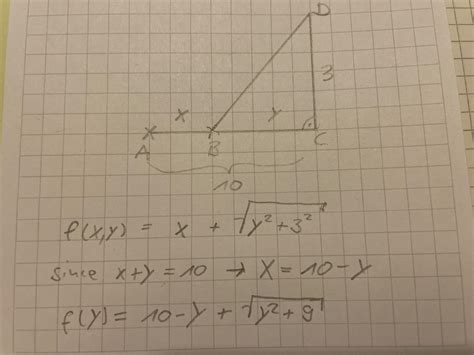 D
3
x y
A B C
10
f(x,y) = x + √(y² + 3²)
since x+y = 10 → X = 10 - y
f(y) = 10 - y + √(y² + 9)